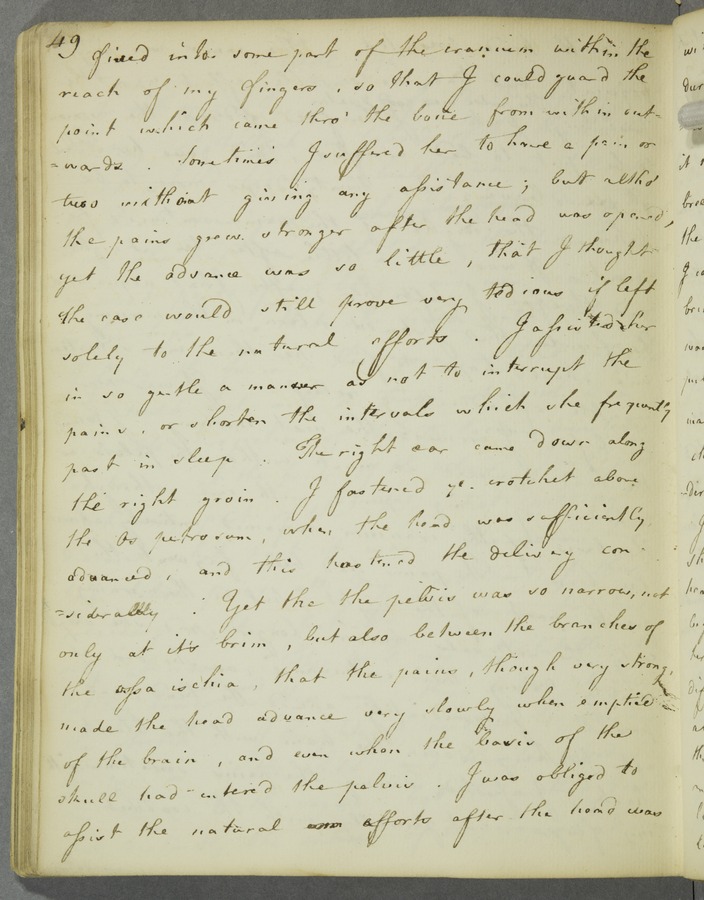 49
fixed into some part of the cranium within the
reach of my fingers, so that I could guard the
point which came thro' the bone from within out=
=wards. Sometimes I suffered her to have a pain or
two without giving any assistance; but altho'
the pains grew stronger after the head was opened,
yet the advance was so little, that I thought
the case would still prove very tedious if left
solely to the natural efforts. I assisted her
in so gentle a manner as not to interrupt the
pains, or shorten the intervals which she frequently
past in sleep. The right ear came down along
the right groin. I fastened ye. crotchet above
the Os petrosum, when the head was sufficiently
advanced, and this hastened the delivery con-
=siderably: Yet the the pelvis was so narrow, not
only at it's brim, but also between the branches of
the ossa ischia, that the pains, though very strong,
made the head advance very slowly when emptied
of the brain, and even when the basis of the
skull had entered the pelvis. I was obliged to
assist the natural efforts after the head was